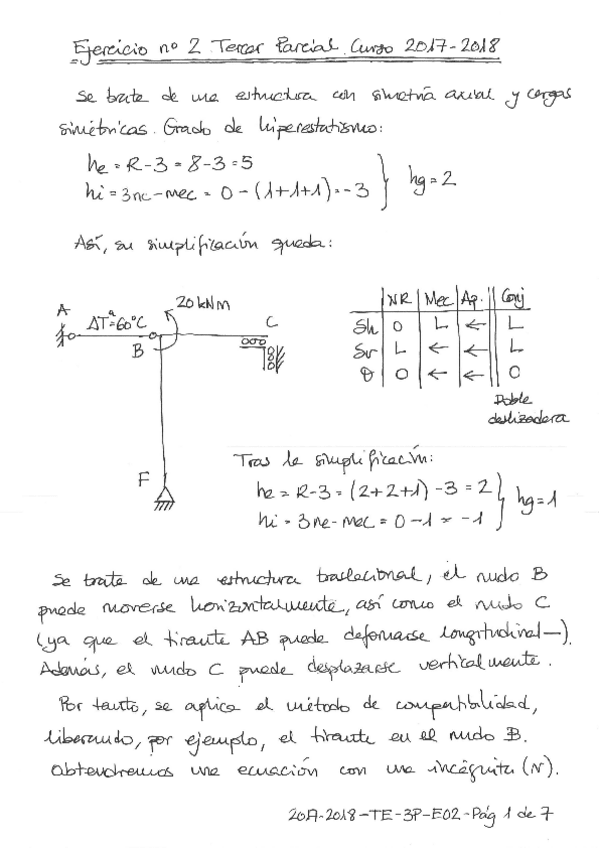 Ejercicio nº 2 Tercer Parcial Curso 2017-2018
Se trata de una estructura con simetría axial y cargas
simétricas. Grado de hiperestatismo:
he = R-3 = 8-3 = 5
hi = 3nc-mec = 0-(1+1+1) = -3 } hg = 2
Así, su simplificación queda:
A ΔTª=60°C 20 kNm C
B
F
NR Mec Ap. Conj
Sh 0 L ← L
Sv L ← ← L
θ 0 ← ← 0
Doble
deslizadera
Tras la simplificación:
he = R-3 = (2+2+1)-3 = 2
hi = 3nc-mec = 0-1 = -1 } hg = 1
Se trata de una estructura traslacional, el nudo B
puede moverse horizontalmente, así como el nudo C
(ya que el tirante AB puede deformarse longitudinal—).
Además, el nudo C puede desplazarse verticalmente.
Por tanto, se aplica el método de compatibilidad,
liberando, por ejemplo, el tirante en el nudo B.
Obtendremos una ecuación con una incógnita (N).
20A-2018-TE-3P-E02-Pág 1 de 7